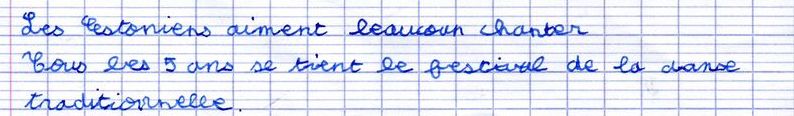 Les Estoniens aiment beaucoup chanter
Tous les 5 ans se tient le festival de la danse
traditionnelle.